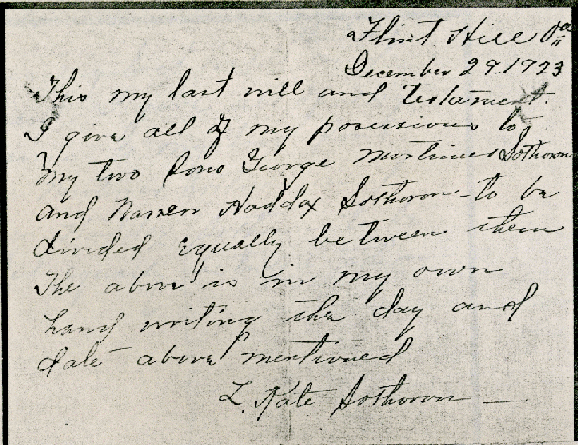 Flint Hill Va
December 29, 1923
This my last will and Testament.
I give all of my possessions to
my two Sons George Mortimer Sothoron
and Warren Haddox Sothoron to be
divided equally between them
The above is in my own
hand writing the day and
date above mentioned
L. Kate Sothoron